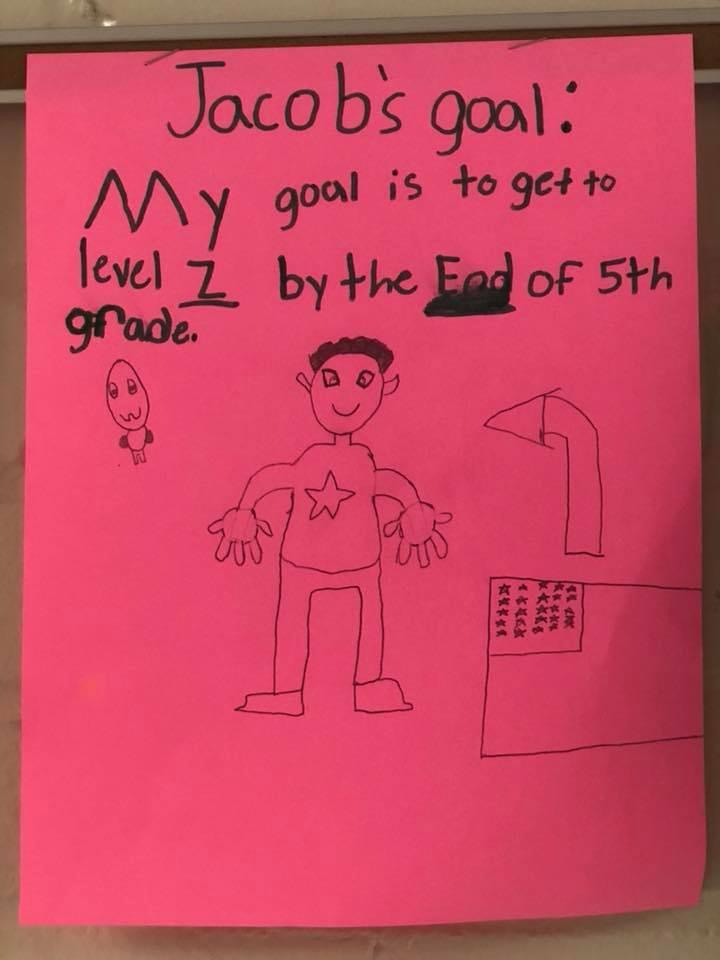 Jacob's goal:
My goal is to get to
level Z by the End of 5th
grade.